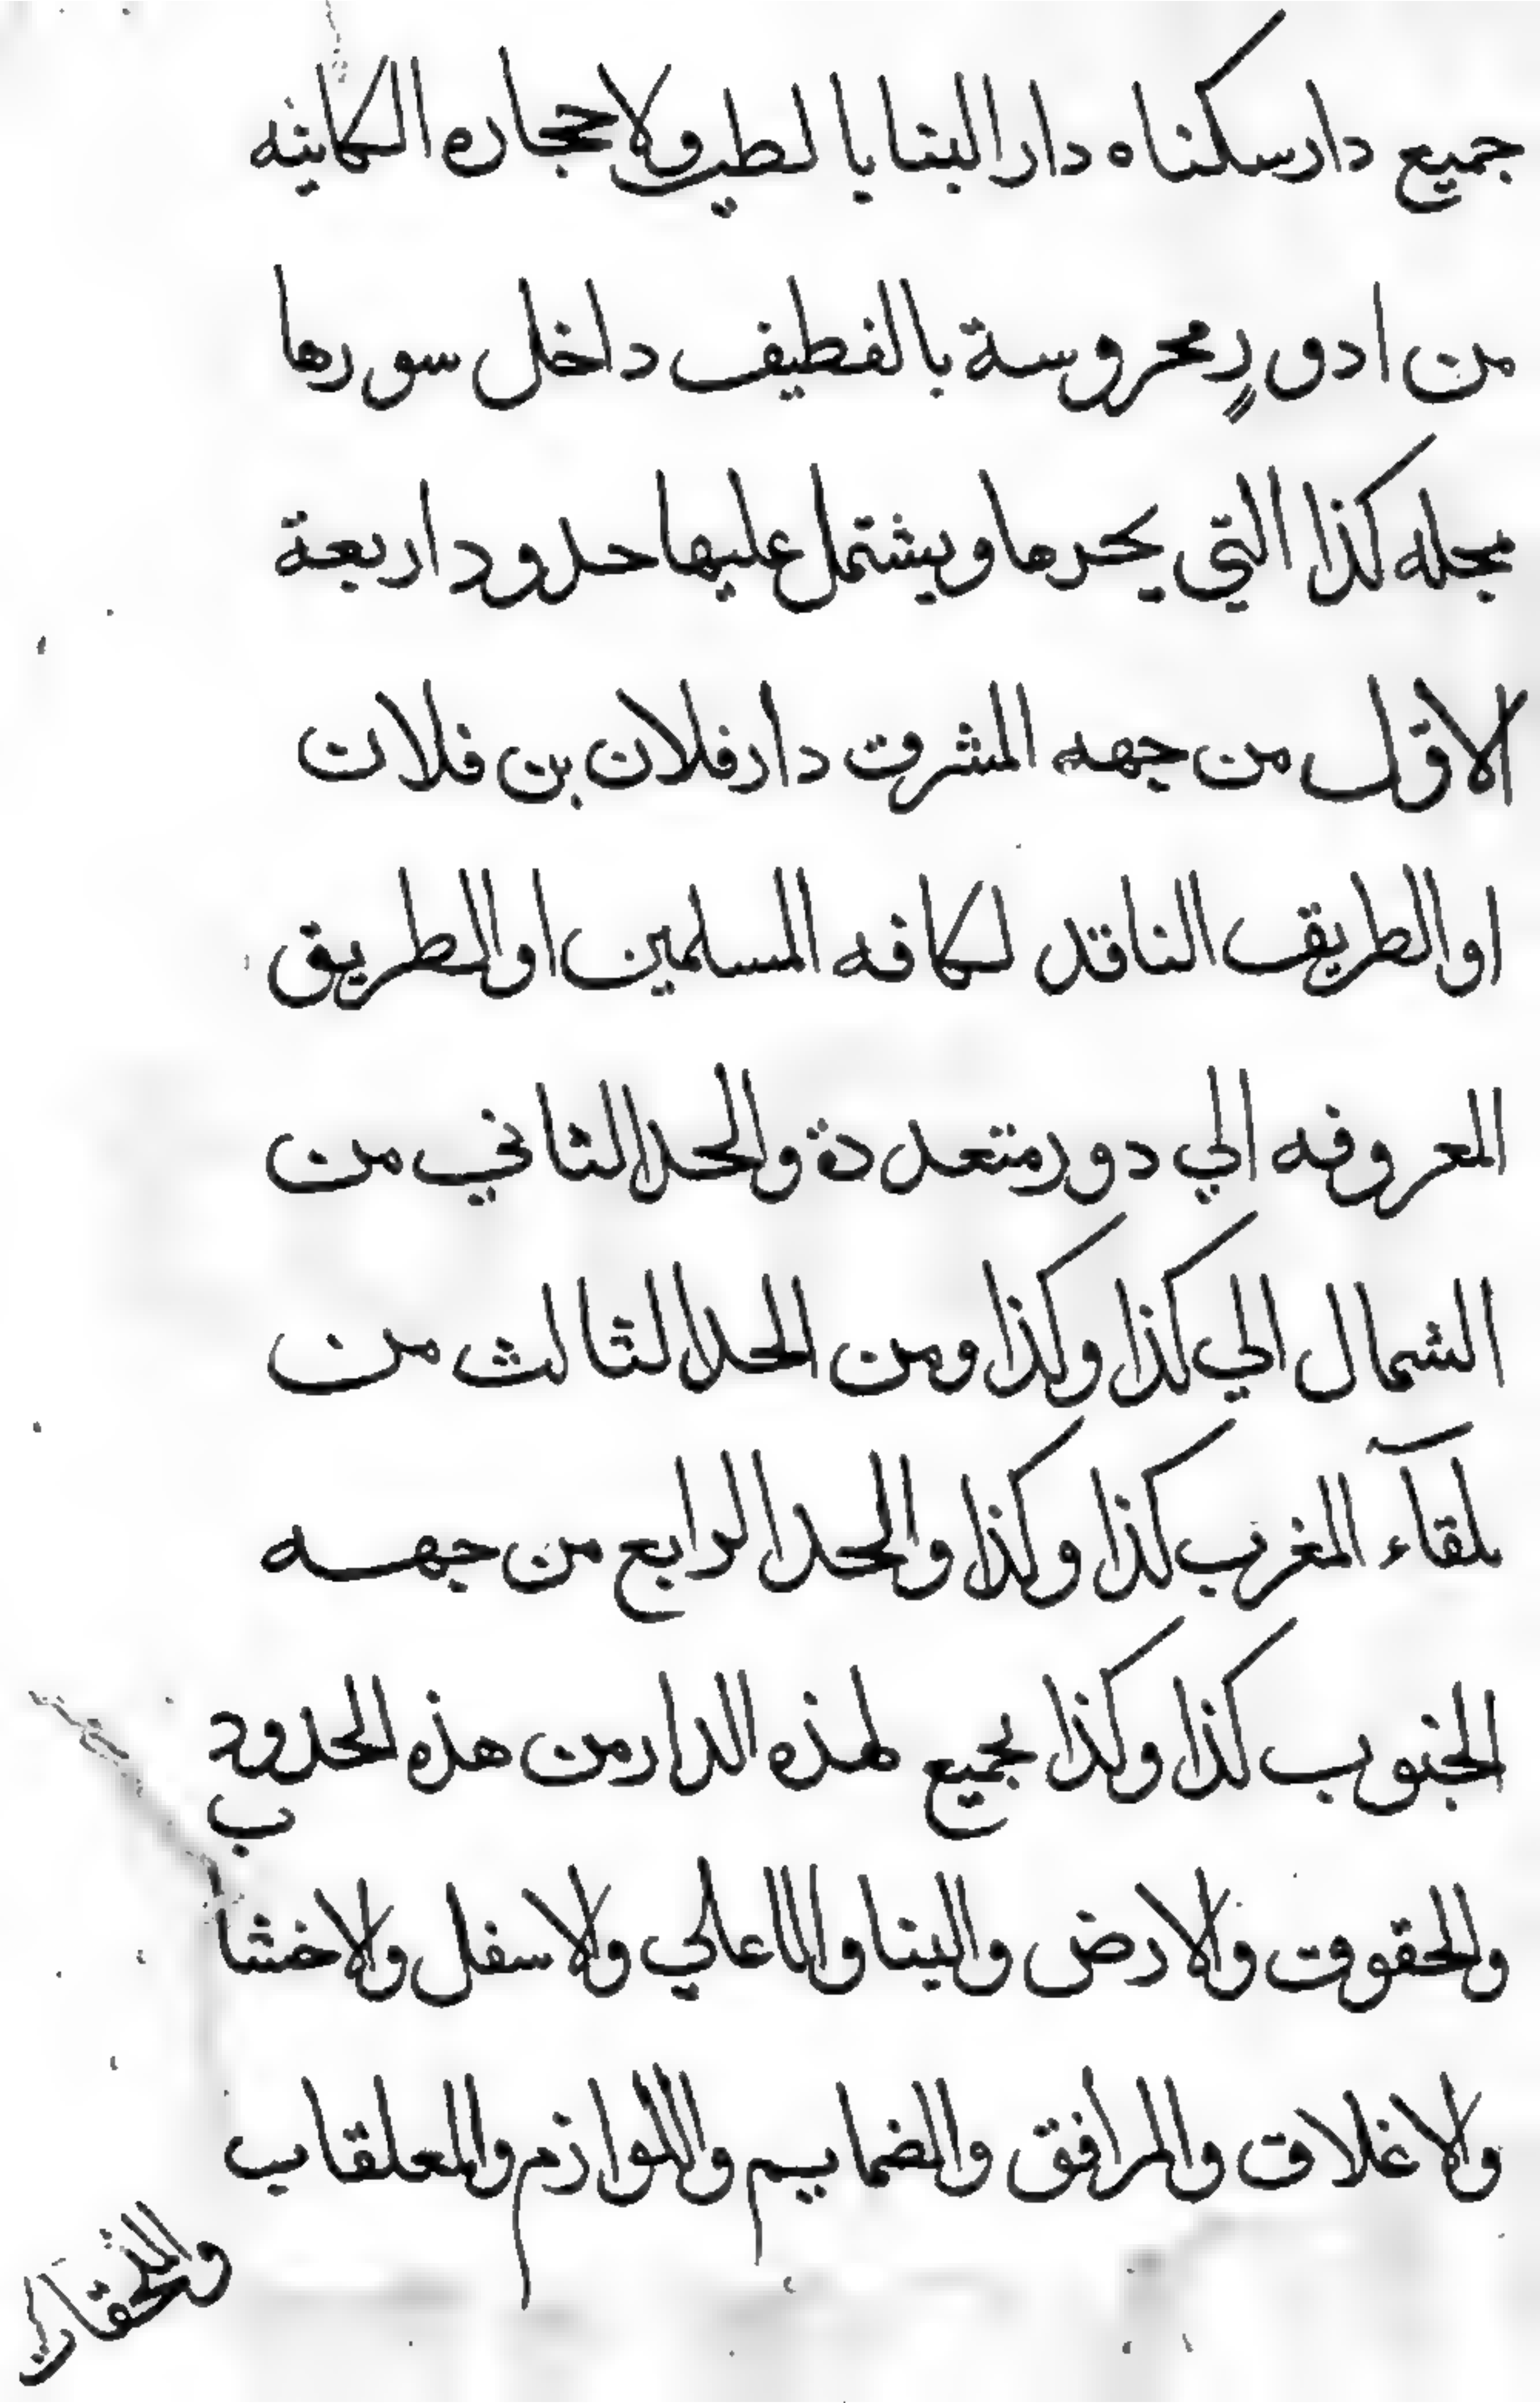 جميع دار سكناه دار البنا يا لطير ولاحجاره الكاينه
من ادور محروسة بالقطيف داخل سورها
بمجله كذا التي يحدها ويشتمل عليها حدود اربعة
الاول من جهه المشرق دار فلان بن فلان
او الطريق الناقد لكافه المسلمين او الطريق
المعروفه الي دور متعددة والحد الثاني من
الشمال الي كذا وكذا ومن الحد الثالث من
بلقآء المغرب كذا وكذا والحد الرابع من جهه
الجنوب كذا وكذا بجميع لهذه الدار من هذه الحدود
والحقوق والارض والبنا والاعالي والاسفل والاخشاب
والاغلاق والمرافق والضمايم واللوازم والمعلقات